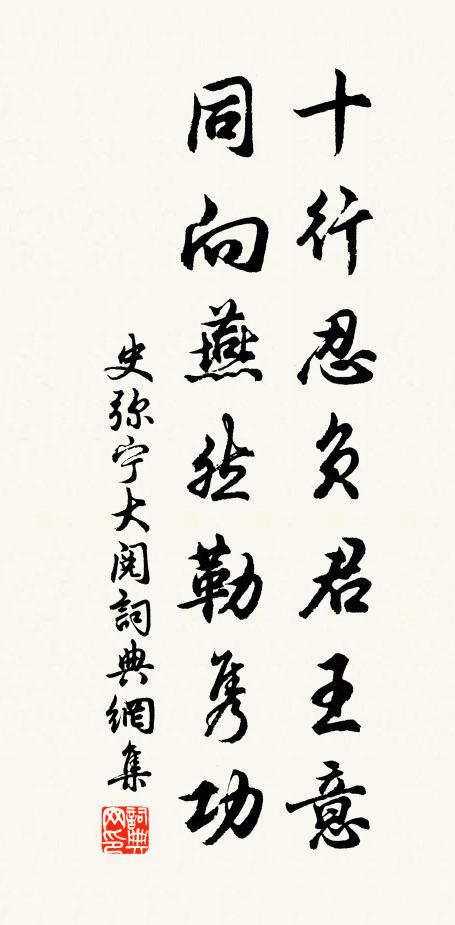 十行忍负君王意
同向燕然勒隽功
史弥宁大阅詞典網集
詞典网印